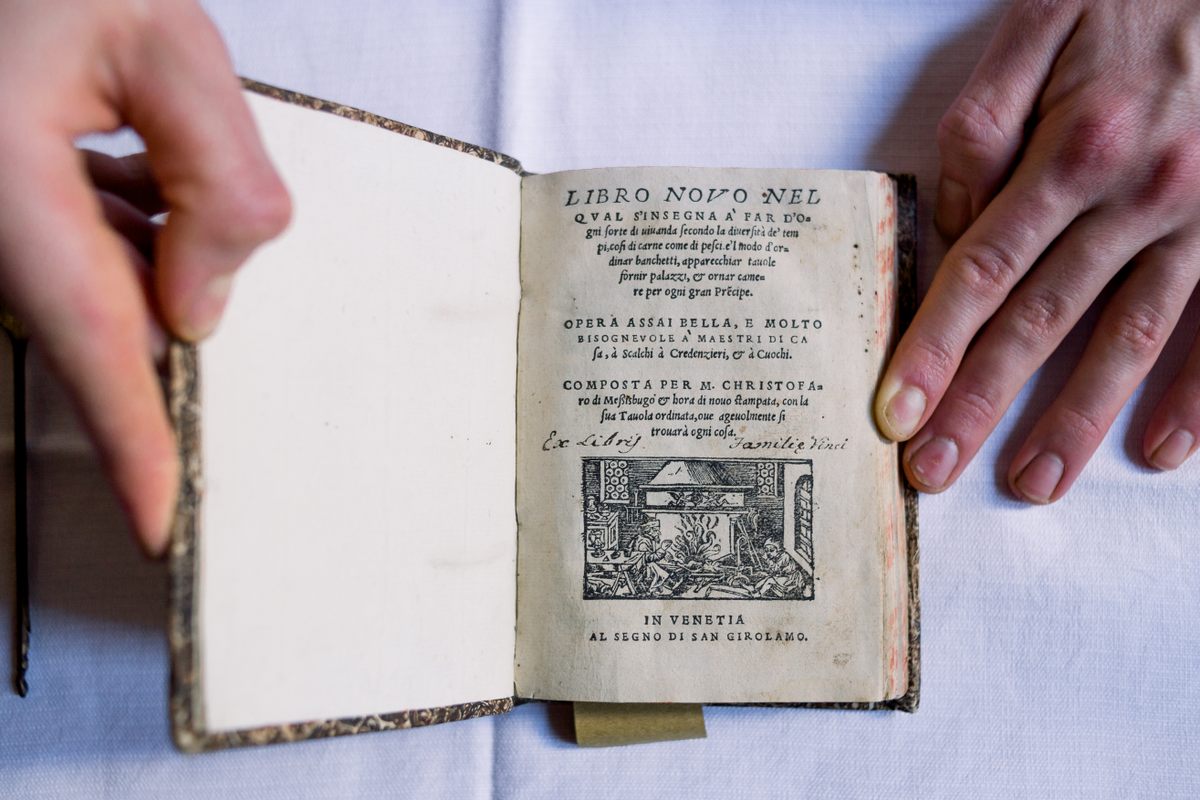 LIBRO NOVO NEL
QVAL S'INSEGNA A' FAR D'O=
gni sorte di uiuanda secondo la diuersità de' tem
pi, cosi di carne come di pesci. e'l modo d'or=
dinar banchetti, apparecchiar tauole
fornir palazzi, & ornar came=
re per ogni gran Prẽcipe.
OPERA ASSAI BELLA, E MOLTO
BISOGNEVOLE A' MAESTRI DI CA
sa, à Scalchi à Credenzieri, & à Cuochi.
COMPOSTA PER M. CHRISTOFA=
ro di Messisbugo & hora di nouo stampata, con la
sua Tauola ordinata, oue ageuolmente si
trouarà ogni cosa.
Ex Libris Familię Vinci
IN VENETIA
AL SEGNO DI SAN GIROLAMO.